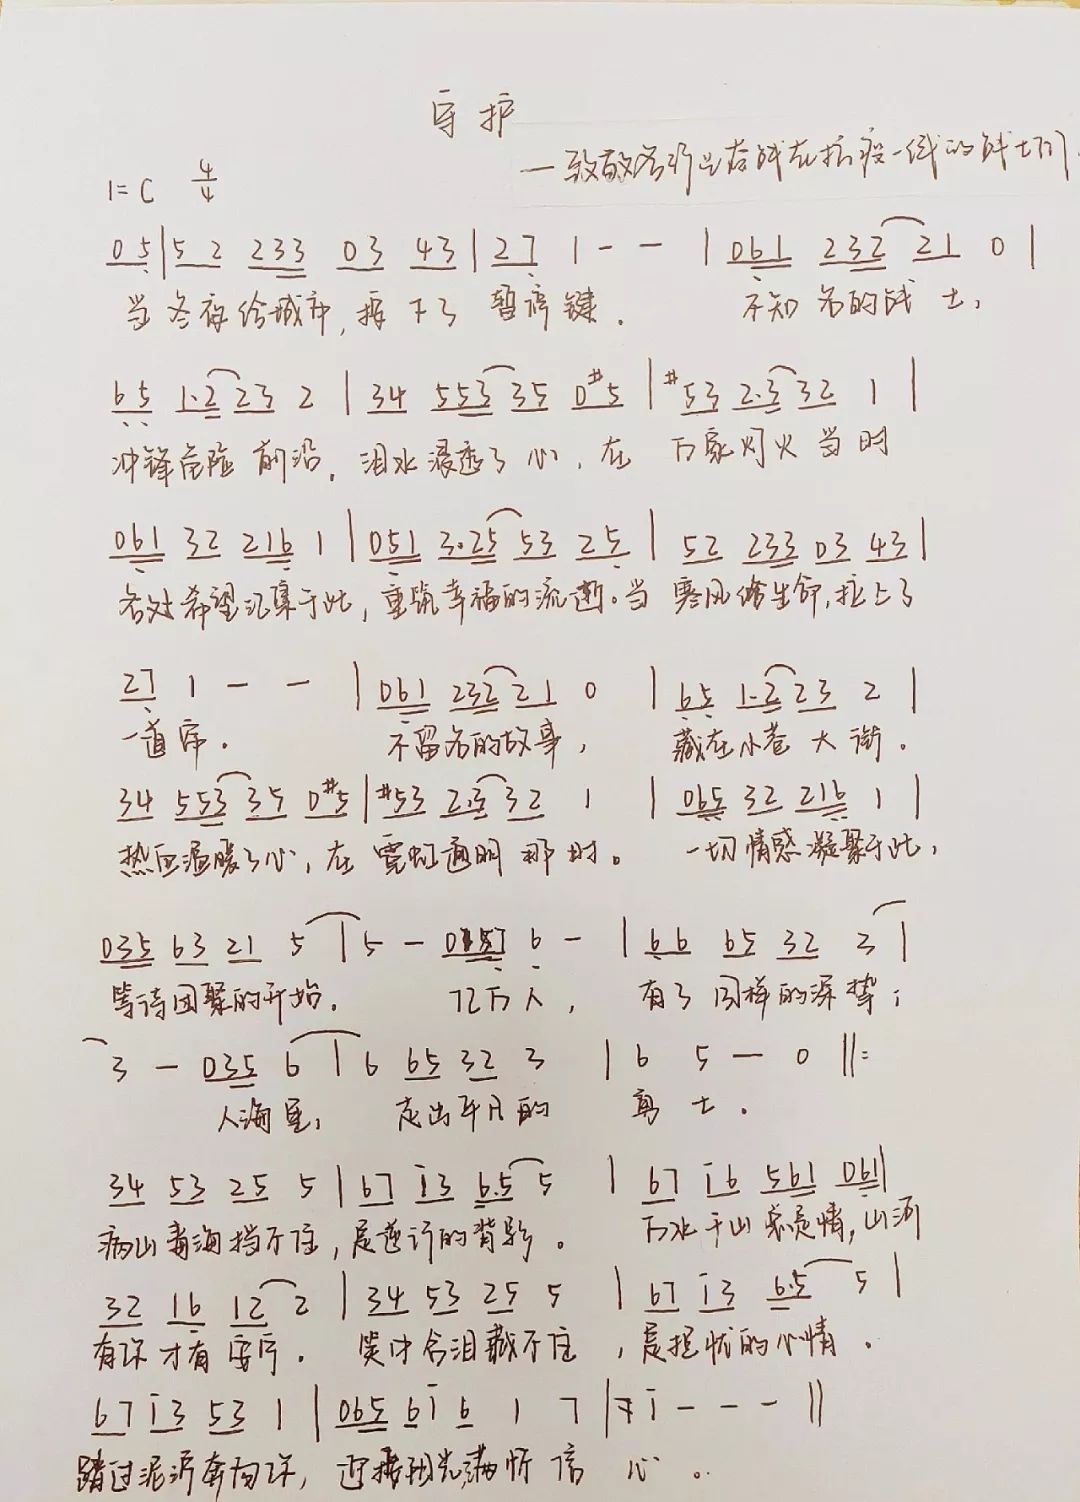 守护
—致敬各行业奋战在抗疫一线的战士们
1=C 4/4
05|52 233 03 43|27 1 - - |061 232 21 0|
当冬夜给城市,按下了暂停键. 不知名的战士,
65 1·2 23 2|34 553 35 0#5|#53 2·3 32 1|
冲锋危险前沿,泪水浸透了心,在万家灯火当时
061 32 216 1|051 3·25 53 25|52 233 03 43|
各处希望汇集于此,重筑幸福的流逝。当寒风给生命,拉上了
27 1 - - |061 232 21 0 |65 1·2 23 2|
一道帘. 不留名的故事, 藏在小巷大街.
34 553 35 0#5|#53 2·3 32 1 |065 32 216 1|
热血温暖了心,在霓虹通明那时。 一切情感凝聚于此,
035 63 21 5|5 - 6 - |66 65 32 3|
等待团聚的开始. 亿万人, 有了同样的深挚;
3 - 035 6|6 65 32 3 |6 5 - 0 ‖:
人海里, 走出平凡的 勇士.
34 53 25 5|67 i3 6·5 5 |67 i6 561 061|
病山毒海挡不住,是逆行的背影. 万水千山总是情,山河
32 16 12 2|34 53 25 5 |67 i3 6·5 5|
有你才有安宁. 笑中含泪藏不住,是担忧的心情.
67 i3 53 1|065 6i 6 1 7|i - - - ‖
踏过泥泞奔向你, 迎接阳光,满怀信心.